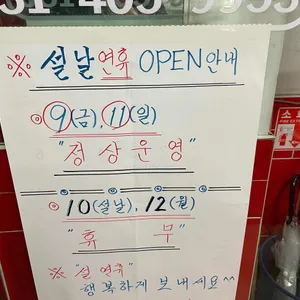 ※ 설날연휴 OPEN안내
◎ 9(금), 11(일)
"정상운영"
◎ 10(설날), 12(월)
"휴 무"
※ "설 연휴"
행복하게 보내세요^^